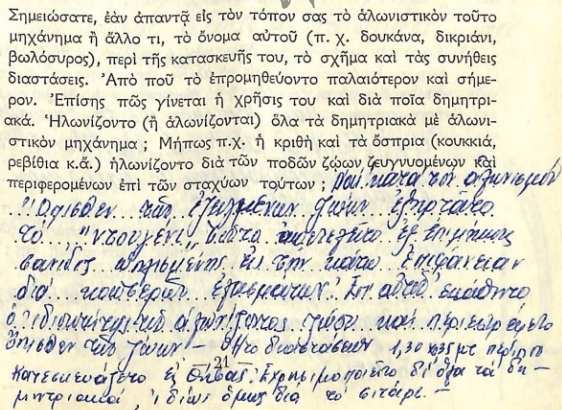 Σημειώσατε, ἐὰν ἀπαντᾷ εἰς τὸν τόπον σας τὸ ἁλωνιστικὸν τοῦτο
μηχάνημα ἢ ἄλλο τι, τὸ ὄνομα αὐτοῦ (π. χ. δουκάνα, δικριάνι,
βωλόσυρος), περὶ τῆς κατασκευῆς του, τὸ σχῆμα καὶ τὰς συνήθεις
διαστάσεις. Ἀπὸ ποῦ τὸ ἐπρομηθεύοντο παλαιότερον καὶ σήμε-
ρον. Ἐπίσης πῶς γίνεται ἡ χρῆσις του καὶ διὰ ποῖα δημητρι-
ακά. Ἡλωνίζοντο (ἢ ἁλωνίζονται) ὅλα τὰ δημητριακὰ μὲ ἁλωνι-
στικὸν μηχάνημα ; Μήπως π.χ. ἡ κριθὴ καὶ τὰ ὄσπρια (κουκκιά,
ρεβίθια κ.ἄ.) ἡλωνίζοντο διὰ τῶν ποδῶν ζῴων ζευγνυομένων καὶ
περιφερομένων ἐπὶ τῶν σταχύων τούτων ; Ναί κατά τον αλωνισμόν
Όπισθεν των εζευγμένων ζώων εξηρτάτο
το "ντουγένι" τούτο απετελείτο εξ επιμήκους
σανίδος εις την κάτω επιφάνειαν
διά κοπτερών Επ' αυτού εκάθητο
ο ιδιοκτήτης του αλωνίζοντος ζώου και περιεφέρετο
όπισθεν των ζώων - Ήτο διαστάσεων 1,30 περίπου
21
Κατεσκευάζετο εις Εχρησιμοποιείτο δι' όλα τα δη-
μητριακά, ιδίως όμως δια το σιτάρι. -